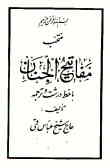 بسم الله الرحمن الرحیم
منتخب
مفاتیح الجنان
با خط درشت و ترجمه
تألیف:
حاج شیخ عباس قمی